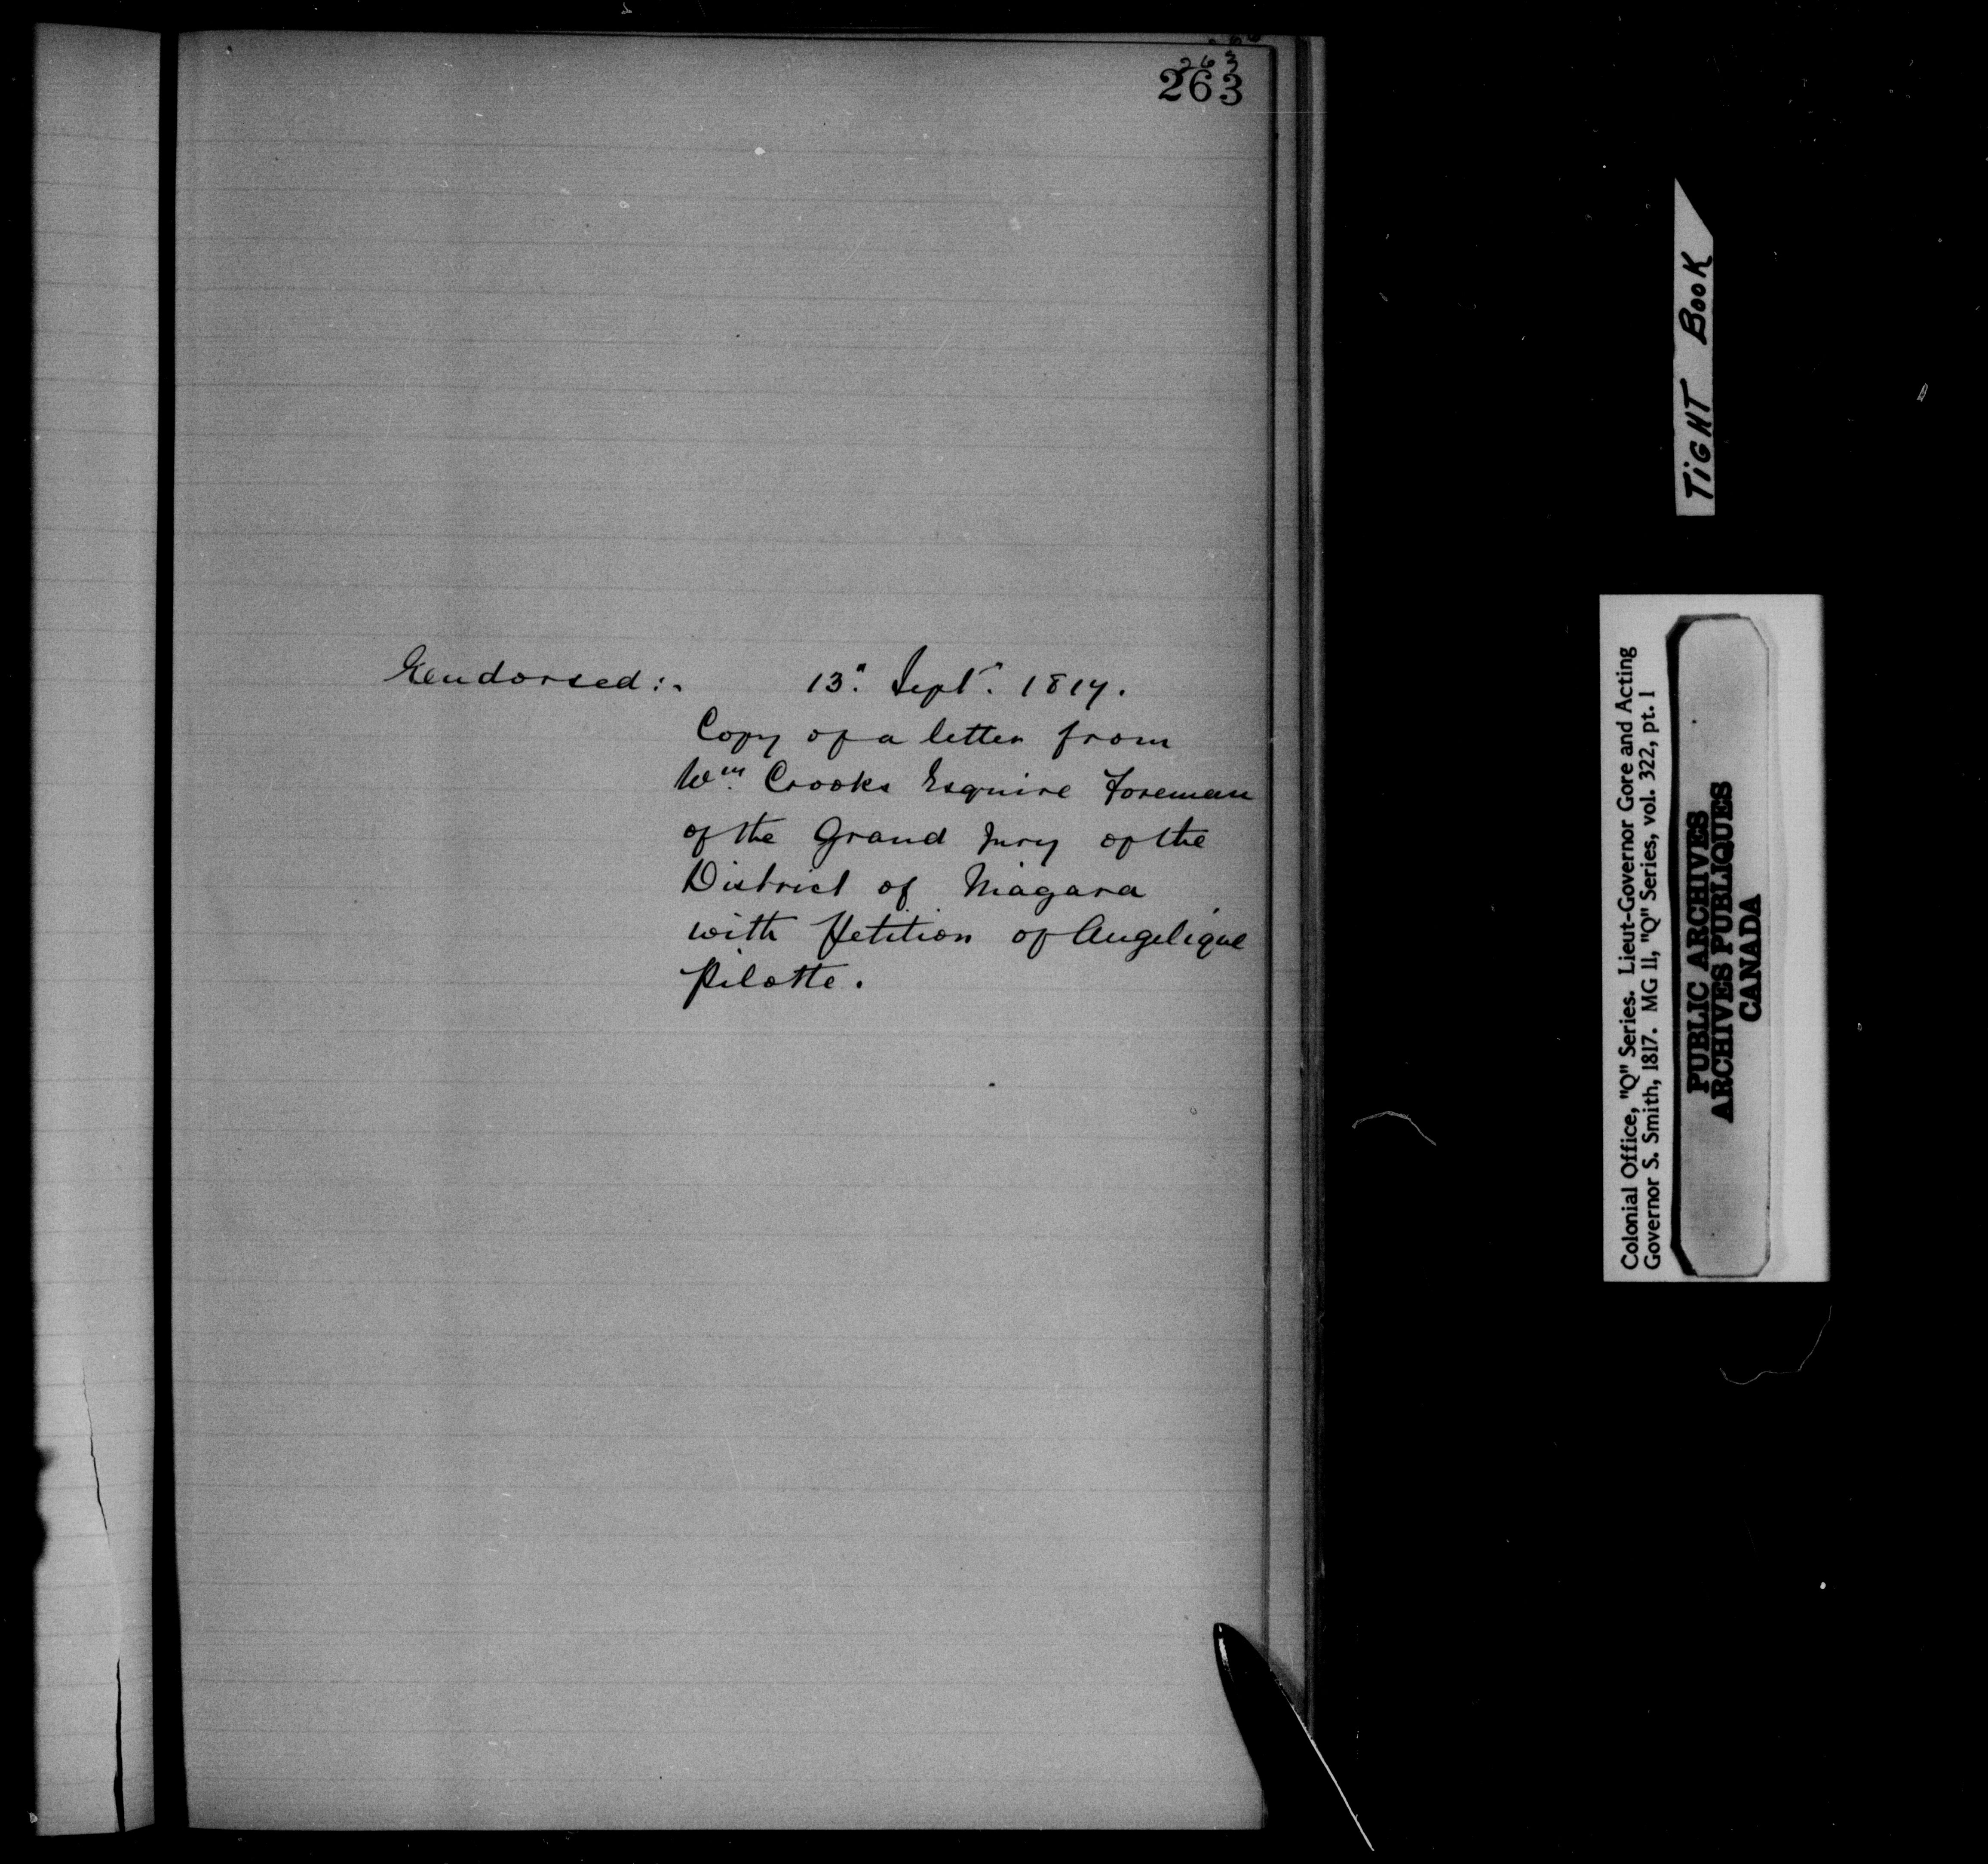 263
263
Endorsed:. 13". Septr. 1817.
Copy of a letter from
Wm. Crooks Esquire Foreman
of the Grand Jury of the
District of Niagara
with Petition of Angelique
Pilotte.
TiGHT BooK
Colonial Office, "Q" Series. Lieut-Governor Gore and Acting
Governor S. Smith, 1817. MG 11, "Q" Series, vol. 322, pt. 1
PUBLIC ARCHIVES
ARCHIVES PUBLIQUES
CANADA